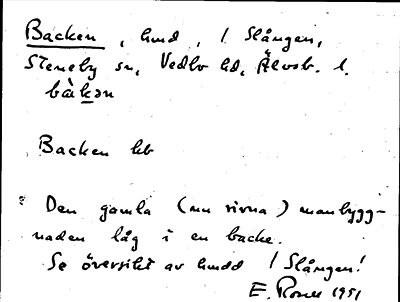 Backen, hmd, / Slången,
Steneby sn, Vedbo hd, Älvsb. l.
bàkən
Backen hb
Den gamla (nu rivna) manbygg-
naden låg i en backe.
Se översikt av hmdd / Slången!
E. 1951